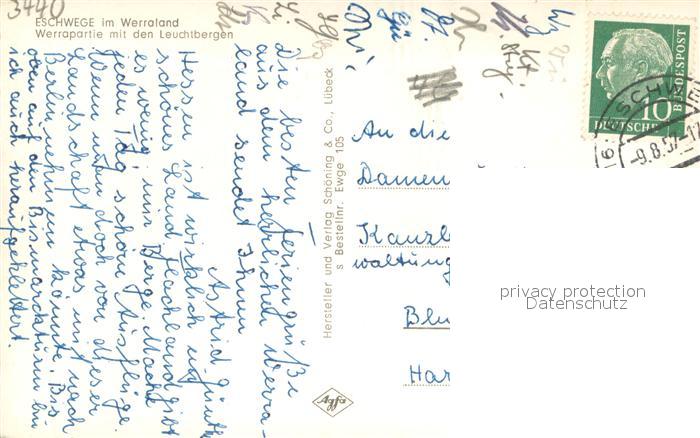 3440
ESCHWEGE im Werraland
Werrapartie mit den Leuchtbergen
Die besten Feriengrüße
aus dem herrlichen Werra-
land sendet Ihnen
Astrid
Hessen ist wirklich ein
schönes Land. Flachland gibt
es wenig, nur Berge. Macht
jeden Tag schöne Ausflüge.
Wenn man doch von dieser
Landschaft etwas mit nach
Berlin nehmen könnte. Bis
oben auf den Bismarckturm bin
ich auch heraufgeklettert.
Hersteller und Verlag Schöning & Co., Lübeck
s Bestellnr. Ewge 105
Agfa
An die
Damen
Kanzl
waltung
Blu
Har
10
DEUTSCHE
BUNDESPOST
ESCHWE
-9.8.57
privacy protection
Datenschutz